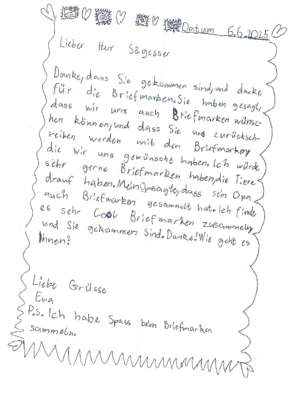 Datum 6.6.2025
Lieber Herr Sägesser
Danke, dass Sie gekommen sind, und danke
für die Briefmarken. Sie haben gesagt,
dass wir uns auch Briefmarken wünsc-
hen können, und dass Sie uns zurücksch-
reiben werden mit den Briefmarken,
die wir uns gewünscht haben. Ich würde
sehr gerne Briefmarken haben, die Tiere
drauf haben. Mein Opa sagte, dass sein Opa
auch Briefmarken gesammelt hat. Ich finde
es sehr Cool Briefmarken zusammeln,
und Sie gekommen Sind. Danke! Wie geht es
Ihnen?
Liebe Grüsse
P.s. Ich habe Spass beim Briefmarken
sammeln.